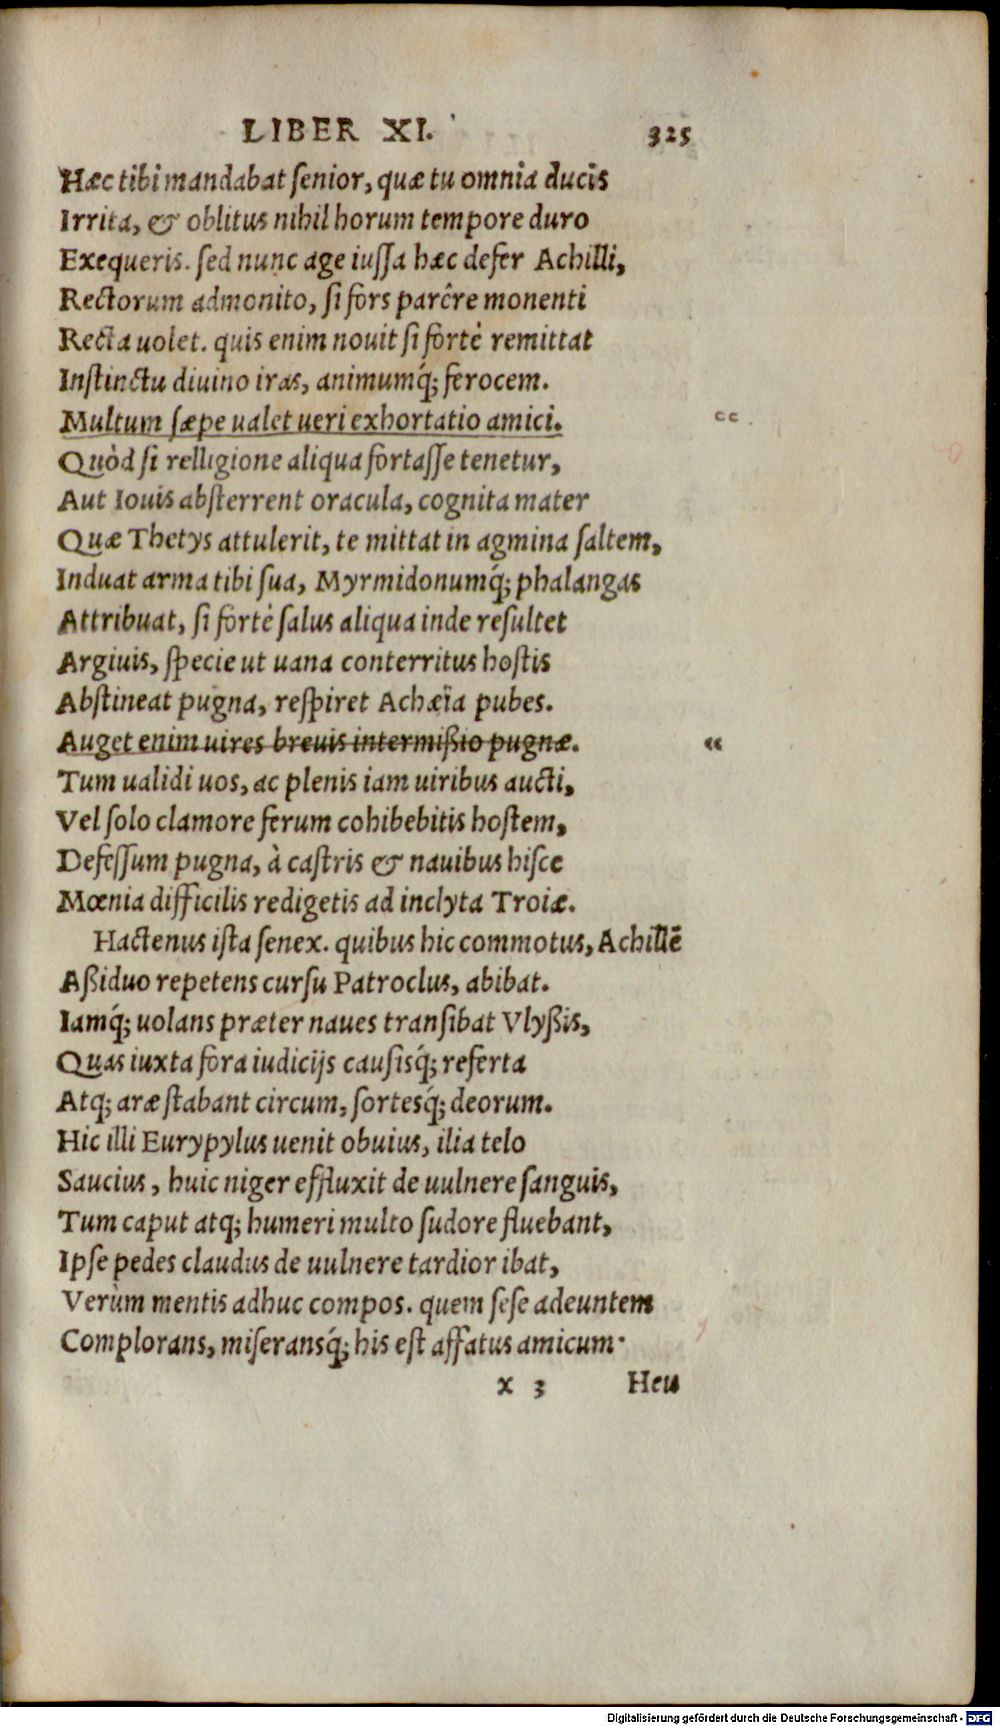 LIBER XI. 325
Hæc tibi mandabat senior, quæ tu omnia ducis
Irrita, & oblitus nihil horum tempore duro
Exequeris. sed nunc age iussa hæc defer Achilli,
Rectorum admonito, si fors parêre monenti
Recta uolet. quis enim nouit si fortè remittat
Instinctu diuino iras, animumq́; ferocem.
Multum sæpe ualet ueri exhortatio amici. cc
Quòd si relligione aliqua fortasse tenetur,
Aut Iouis absterrent oracula, cognita mater
Quæ Thetys attulerit, te mittat in agmina saltem,
Induat arma tibi sua, Myrmidonumq́; phalangas
Attribuat, si fortè salus aliqua inde resultet
Argiuis, specie ut uana conterritus hostis
Abstineat pugna, respiret Achæïa pubes.
Auget enim uires breuis intermißio pugnæ. «
Tum ualidi uos, ac plenis iam uiribus aucti,
Vel solo clamore ferum cohibebitis hostem,
Defessum pugna, à castris & nauibus hisce
Mœnia difficilis redigetis ad inclyta Troiæ.
Hactenus ista senex. quibus hic commotus, Achillẽ
Aßiduo repetens cursu Patroclus, abibat.
Iamq́; uolans præter naues transibat Vlyßis,
Quas iuxta fora iudicijs causisq́; referta
Atq; aræ stabant circum, sortesq́; deorum.
Hic illi Eurypylus uenit obuius, ilia telo
Saucius, huic niger effluxit de uulnere sanguis,
Tum caput atq; humeri multo sudore fluebant,
Ipse pedes claudus de uulnere tardior ibat,
Verùm mentis adhuc compos. quem sese adeuntem
Complorans, miseransq́; his est affatus amicum.
x 3 Heu
Digitalisierung gefördert durch die Deutsche Forschungsgemeinschaft - DFG